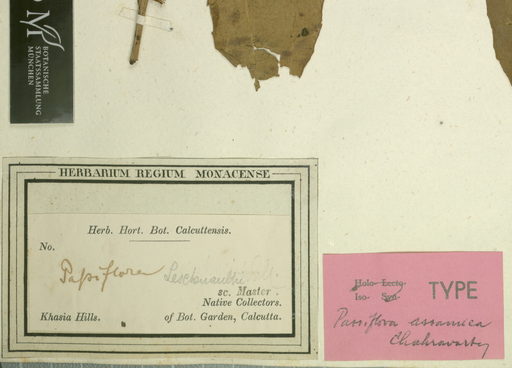 M
BOTANISCHE
STAATSSAMMLUNG
MÜNCHEN
HERBARIUM REGIUM MONACENSE
Herb. Hort. Bot. Calcuttensis.
No.
Passiflora Leschenaultii
sc. Master.
Native Collectors.
Khasia Hills. of Bot. Garden, Calcutta.
Holo- Lecto-
Iso- Syn- TYPE
Passiflora assamica
Chakravarty